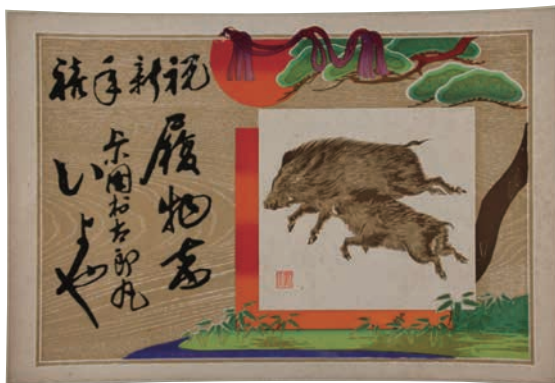 祝新年禧
履物商
村太郎丸
いよや